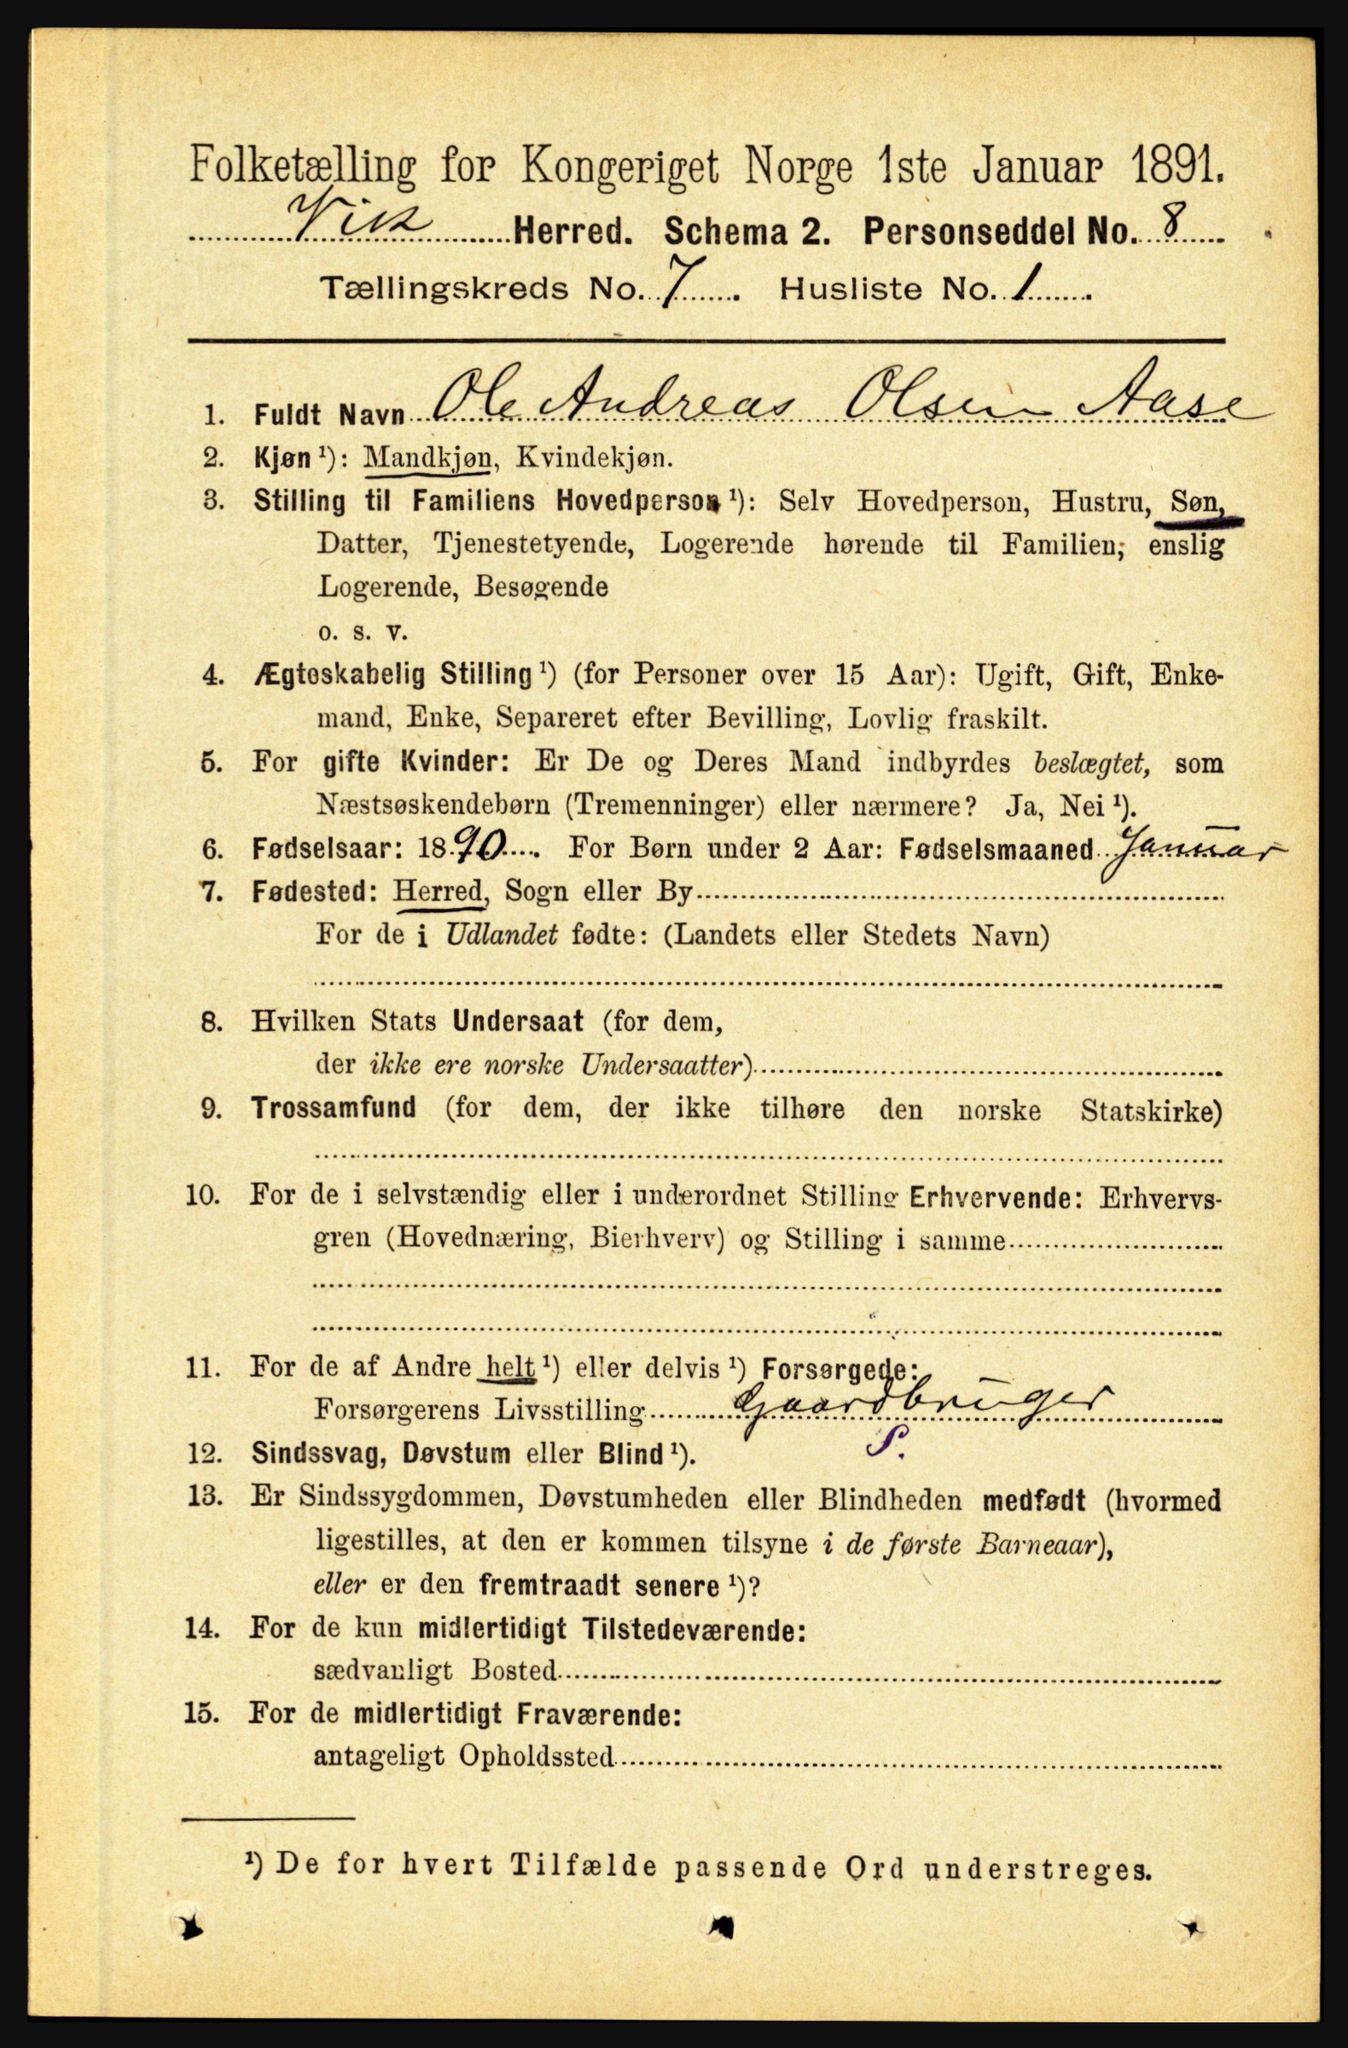 Folketælling for Kongeriget Norge 1ste Januar 1891.
Vik Herred. Schema 2. Personseddel No. 8
Tællingskreds No. 7. Husliste No. 1.
1. Fuldt Navn Ole Andreas Olsen Aase
2. Kjøn ¹): Mandkjøn, Kvindekjøn.
3. Stilling til Familiens Hovedperson ¹): Selv Hovedperson, Hustru, Søn,
Datter, Tjenestetyende, Logerende hørende til Familien, enslig
Logerende, Besøgende
o. s. v.
4. Ægteskabelig Stilling ¹) (for Personer over 15 Aar): Ugift, Gift, Enke-
mand, Enke, Separeret efter Bevilling, Lovlig fraskilt.
5. For gifte Kvinder: Er De og Deres Mand indbyrdes beslægtet, som
Næstsøskendebørn (Tremenninger) eller nærmere? Ja, Nei ¹).
6. Fødselsaar: 1890. For Børn under 2 Aar: Fødselsmaaned Januar
7. Fødested: Herred, Sogn eller By
For de i Udlandet fødte: (Landets eller Stedets Navn)
8. Hvilken Stats Undersaat (for dem,
der ikke ere norske Undersaatter)
9. Trossamfund (for dem, der ikke tilhøre den norske Statskirke)
10. For de i selvstændig eller i underordnet Stilling Erhvervende: Erhvervs-
gren (Hovednæring, Bierhverv) og Stilling i samme
11. For de af Andre helt ¹) eller delvis ¹) Forsørgede:
Forsørgerens Livsstilling Gaardbruger
S.
12. Sindssvag, Døvstum eller Blind ¹).
13. Er Sindssygdommen, Døvstumheden eller Blindheden medfødt (hvormed
ligestilles, at den er kommen tilsyne i de første Barneaar),
eller er den fremtraadt senere ¹)?
14. For de kun midlertidigt Tilstedeværende:
sædvanligt Bosted
15. For de midlertidigt Fraværende:
antageligt Opholdssted
¹) De for hvert Tilfælde passende Ord understreges.